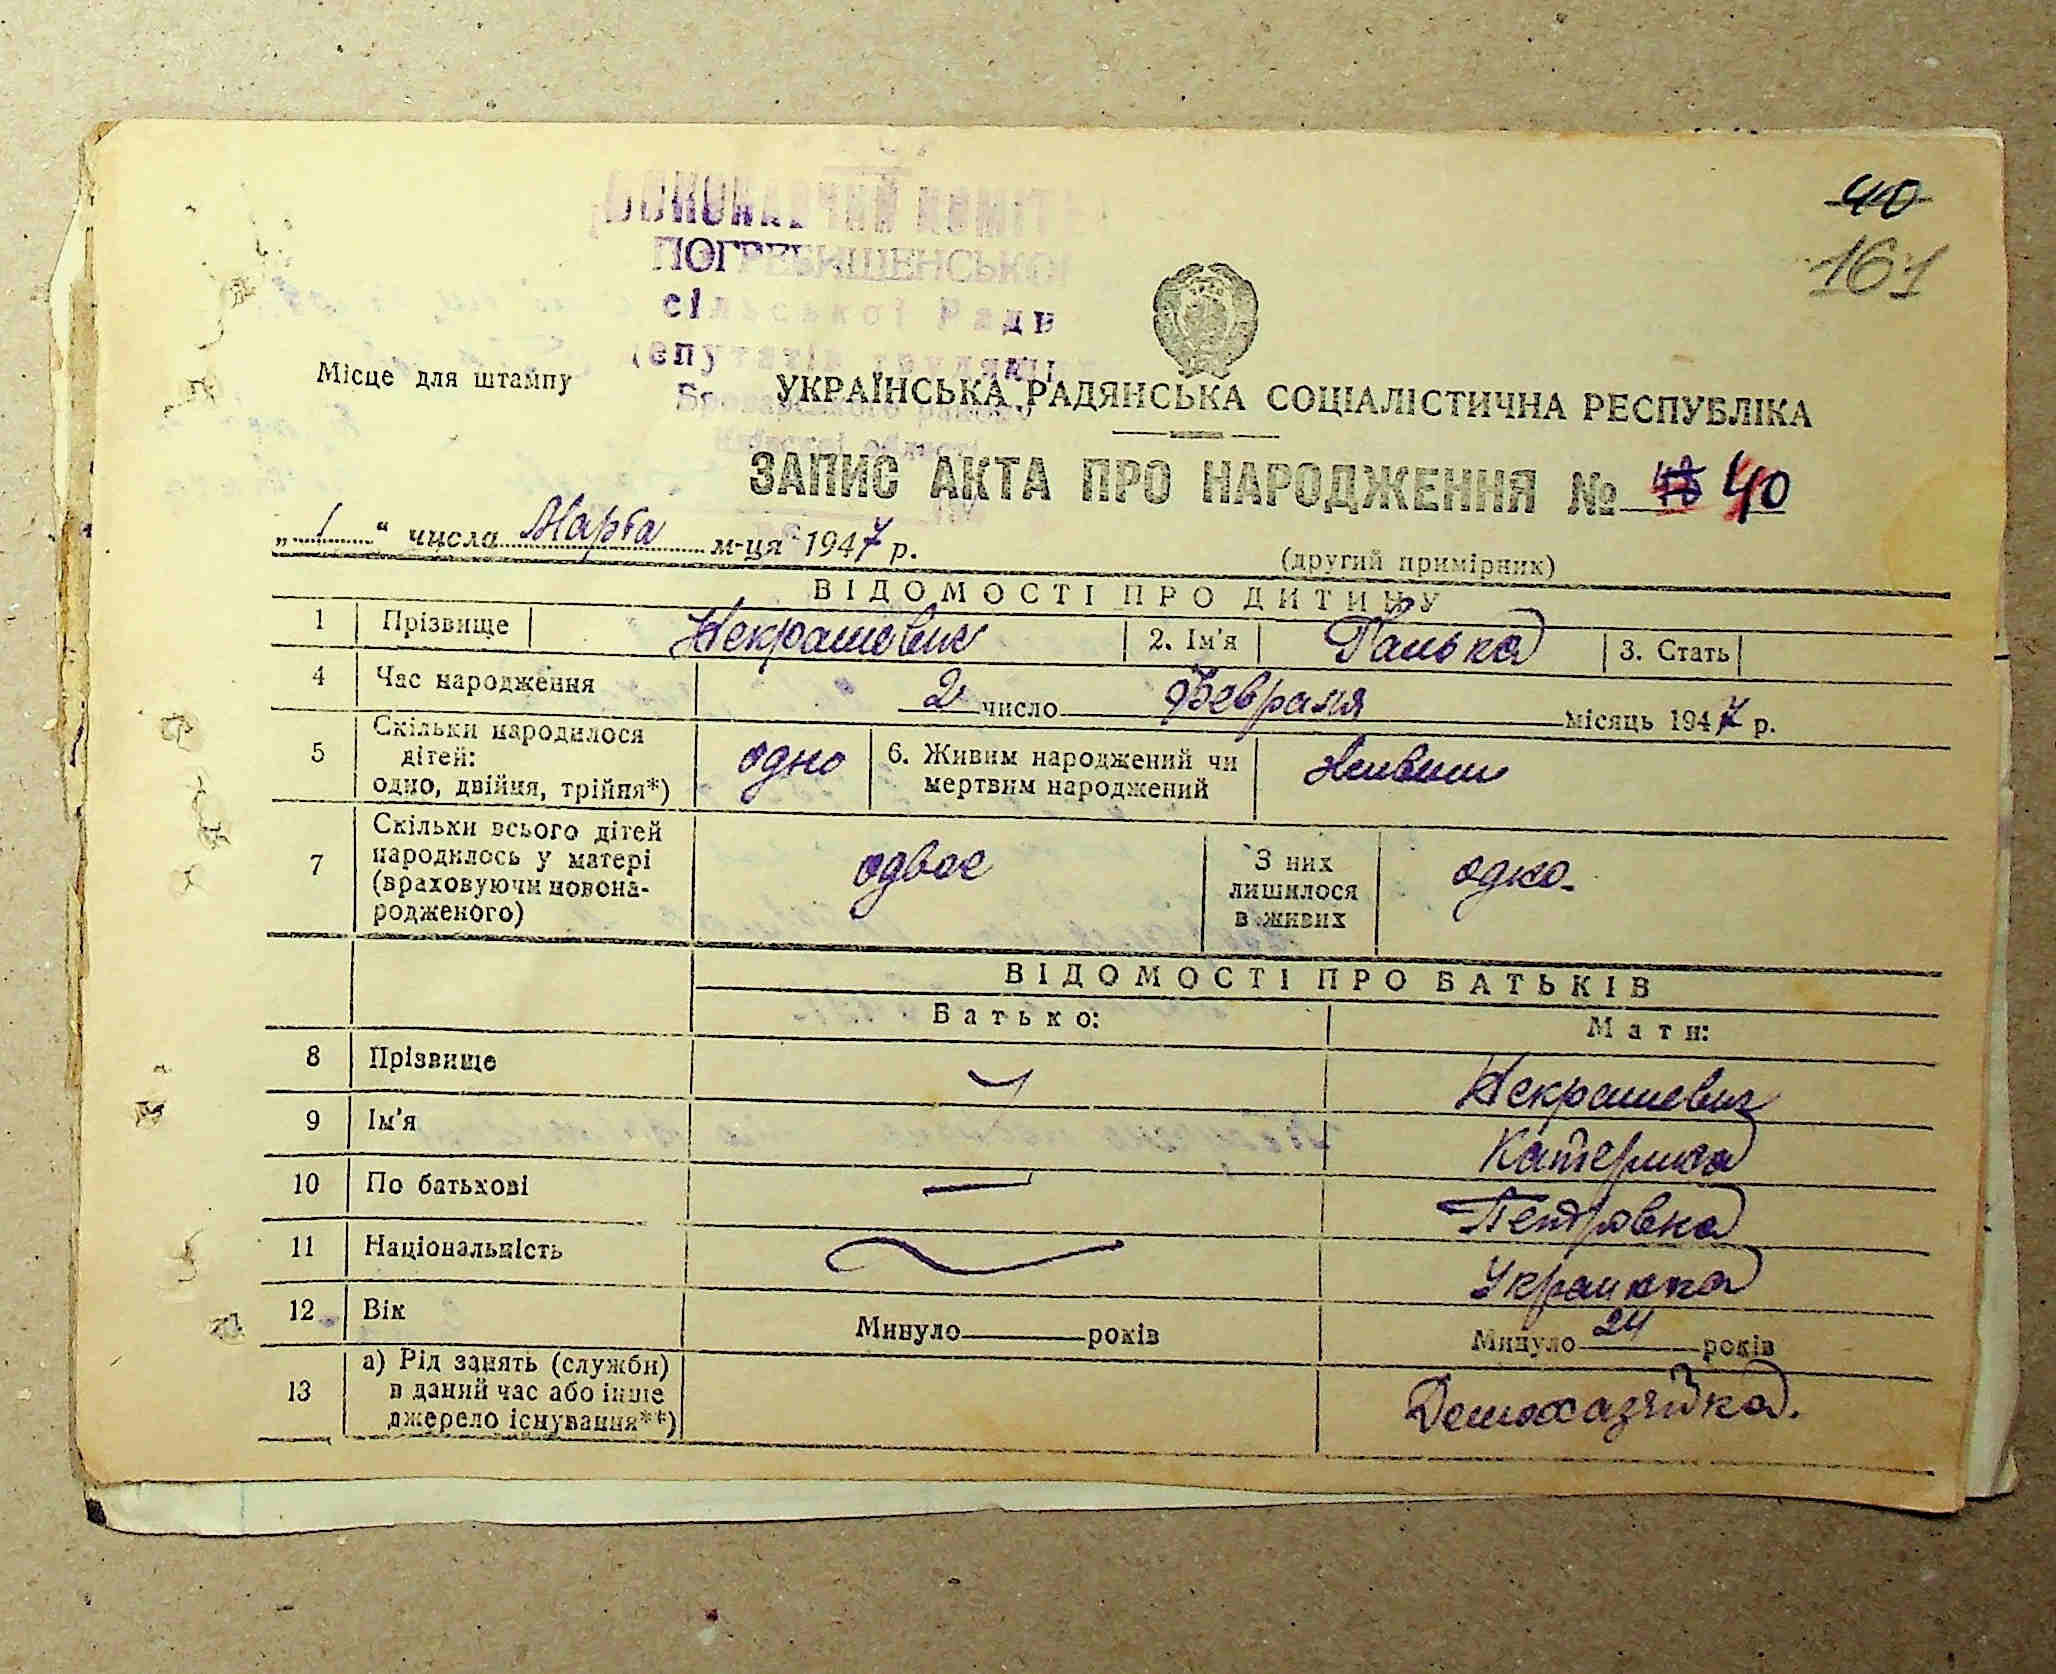 40
161
ВИКОНАВЧИЙ КОМІТЕТ
ПОГРЕБИЩЕНСЬКОЇ
сільської Ради
депутатів трудящих
Броварського району
Київської області
Місце для штампу
УКРАЇНСЬКА РАДЯНСЬКА СОЦІАЛІСТИЧНА РЕСПУБЛІКА
ЗАПИС АКТА ПРО НАРОДЖЕННЯ № 40
„ 1 “ числа Марта м-ця 1947 р.
(другий примірник)
ВІДОМОСТІ ПРО ДИТИНУ
1 Прізвище Некрашевич 2. Ім'я Галька 3. Стать
4 Час народження 2 число Февраля місяць 1947 р.
5 Скільки народилося дітей: одно, двійня, трійня*) одно 6. Живим народжений чи мертвим народжений Живим
7 Скільки всього дітей народилось у матері (враховуючи новонародженого) одвоє З них лишилося в живих одно.
ВІДОМОСТІ ПРО БАТЬКІВ
Батько: Мати:
8 Прізвище Некрашевич
9 Ім'я Катерина
10 По батькові Петровна
11 Національність Украинка
12 Вік Минуло років Минуло 24 років
13 а) Рід занять (служби) в даний час або інше джерело існування**) Домохазяйка.